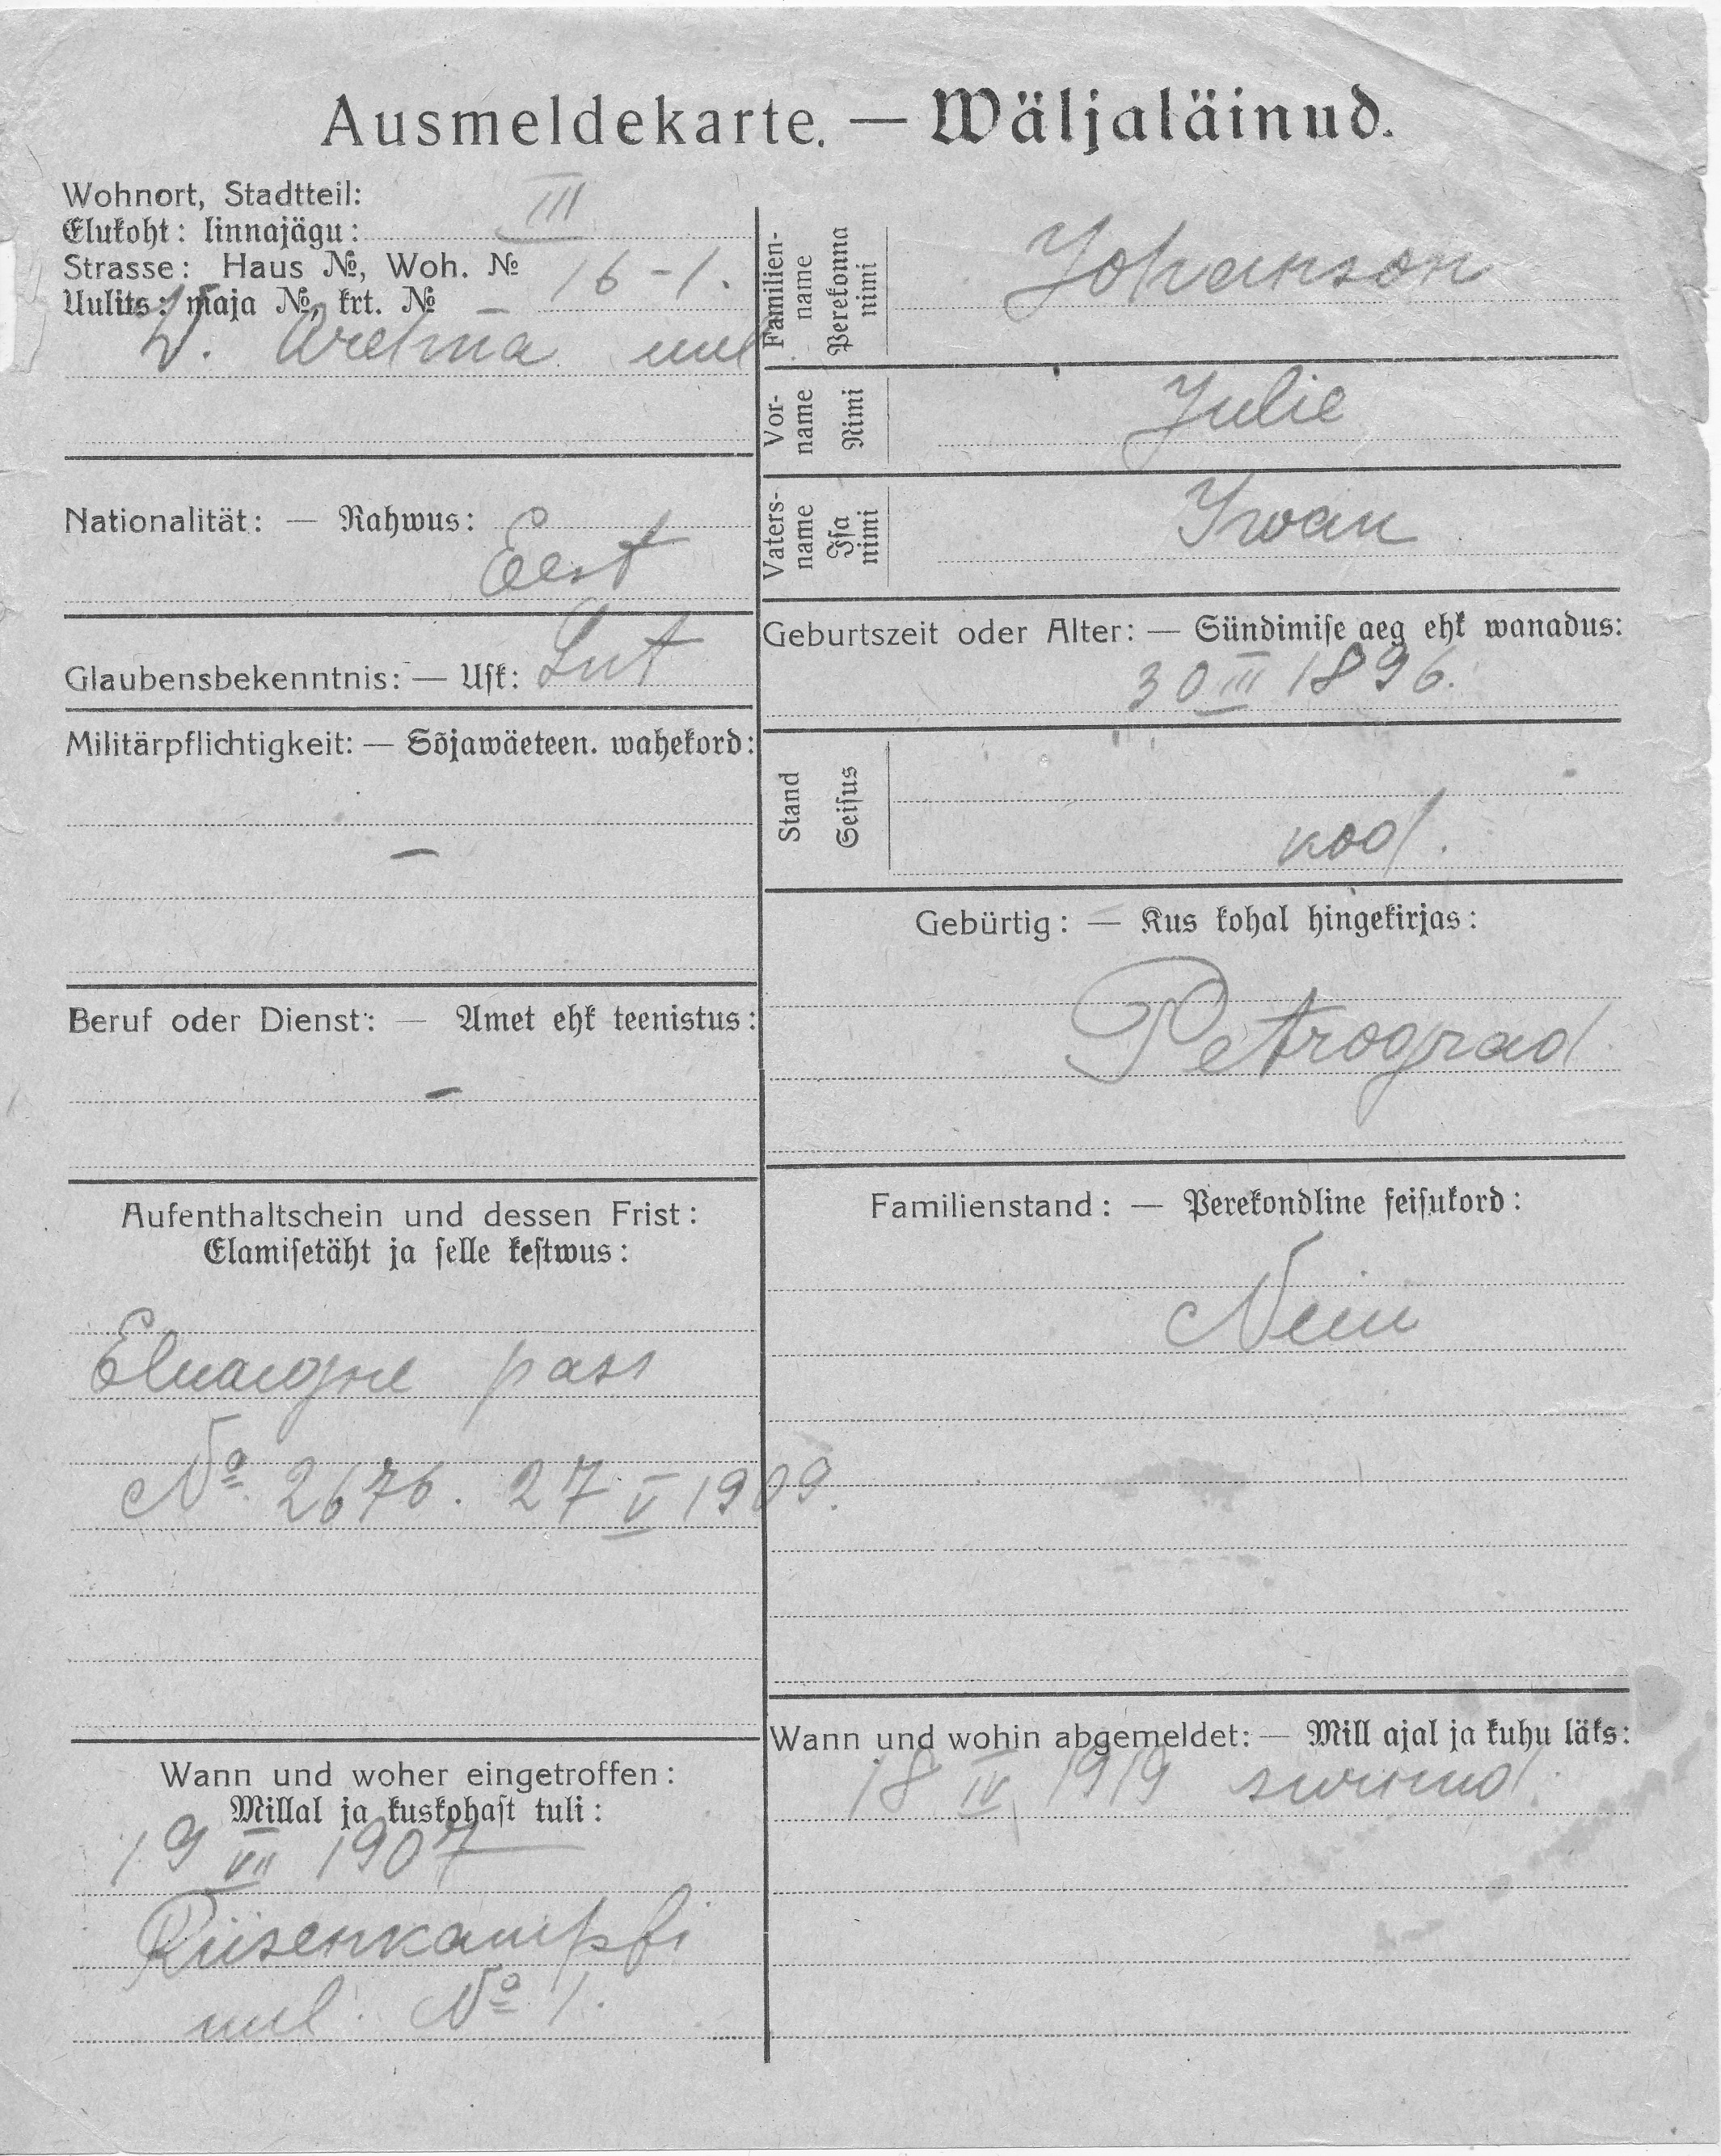 Ausmeldekarte. — Wäljaläinud.
Wohnort, Stadtteil:
Elukoht: linnajägu: III
Strasse: Haus №, Woh. №
Uulits: maja №, krt. № 16-1.
W. uul
Nationalität: — Rahwus:
Eest
Glaubensbekenntnis: — Usk: Lut
Militärpflichtigkeit: — Sõjawäeteen. wahekord:
—
Beruf oder Dienst: — Amet ehk teenistus:
—
Aufenthaltschein und dessen Frist:
Elamisetäht ja selle kestwus:
Eluaegne pass
№ 2676. 27 V 1909.
Wann und woher eingetroffen:
Millal ja kuskohast tuli:
19 VII 1907
Rüsenkampfi
uul. № 1.
Familien-
name
Perekonna
nimi
Johanson
Vor-
name
Nimi
Julie
Vaters-
name
Isa
nimi
Iwan
Geburtszeit oder Alter: — Sündimise aeg ehk wanadus:
30 III 1896.
Stand
Seisus
kod.
Gebürtig: — Kus kohal hingekirjas:
Petrograd
Familienstand: — Perekondline seisukord:
Neiu
Wann und wohin abgemeldet: — Mill ajal ja kuhu läks:
18 IV 1919 surnud.